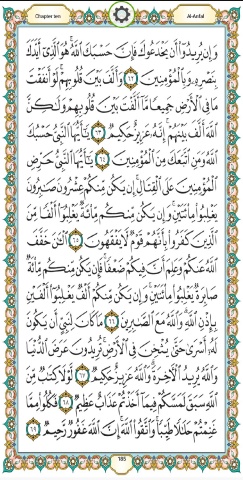 Chapter ten
Al-Anfal
وَإِن يُرِيدُوٓا۟ أَن يَخْدَعُوكَ فَإِنَّ حَسْبَكَ ٱللَّهُ هُوَ ٱلَّذِىٓ أَيَّدَكَ
بِنَصْرِهِۦ وَبِٱلْمُؤْمِنِينَ ٦٢ وَأَلَّفَ بَيْنَ قُلُوبِهِمْ لَوْ أَنفَقْتَ
مَا فِى ٱلْأَرْضِ جَمِيعًا مَّآ أَلَّفْتَ بَيْنَ قُلُوبِهِمْ وَلَٰكِنَّ
ٱللَّهَ أَلَّفَ بَيْنَهُمْ إِنَّهُۥ عَزِيزٌ حَكِيمٌ ٦٣ يَٰٓأَيُّهَا ٱلنَّبِىُّ حَسْبُكَ
ٱللَّهُ وَمَنِ ٱتَّبَعَكَ مِنَ ٱلْمُؤْمِنِينَ ٦٤ يَٰٓأَيُّهَا ٱلنَّبِىُّ حَرِّضِ
ٱلْمُؤْمِنِينَ عَلَى ٱلْقِتَالِ إِن يَكُن مِّنكُمْ عِشْرُونَ صَٰبِرُونَ
يَغْلِبُوا۟ مِا۟ئَتَيْنِ وَإِن يَكُن مِّنكُم مِّا۟ئَةٌ يَغْلِبُوٓا۟ أَلْفًا مِّنَ
ٱلَّذِينَ كَفَرُوا۟ بِأَنَّهُمْ قَوْمٌ لَّا يَفْقَهُونَ ٦٥ ٱلْـَٰٔنَ خَفَّفَ
ٱللَّهُ عَنكُمْ وَعَلِمَ أَنَّ فِيكُمْ ضَعْفًا فَإِن يَكُن مِّنكُم مِّا۟ئَةٌ
صَابِرَةٌ يَغْلِبُوا۟ مِا۟ئَتَيْنِ وَإِن يَكُن مِّنكُمْ أَلْفٌ يَغْلِبُوٓا۟ أَلْفَيْنِ
بِإِذْنِ ٱللَّهِ وَٱللَّهُ مَعَ ٱلصَّٰبِرِينَ ٦٦ مَا كَانَ لِنَبِىٍّ أَن يَكُونَ
لَهُۥٓ أَسْرَىٰ حَتَّىٰ يُثْخِنَ فِى ٱلْأَرْضِ تُرِيدُونَ عَرَضَ ٱلدُّنْيَا
وَٱللَّهُ يُرِيدُ ٱلْـَٔاخِرَةَ وَٱللَّهُ عَزِيزٌ حَكِيمٌ ٦٧ لَّوْلَا كِتَٰبٌ مِّنَ
ٱللَّهِ سَبَقَ لَمَسَّكُمْ فِيمَآ أَخَذْتُمْ عَذَابٌ عَظِيمٌ ٦٨ فَكُلُوا۟ مِمَّا
غَنِمْتُمْ حَلَٰلًا طَيِّبًا وَٱتَّقُوا۟ ٱللَّهَ إِنَّ ٱللَّهَ غَفُورٌ رَّحِيمٌ ٦٩
185